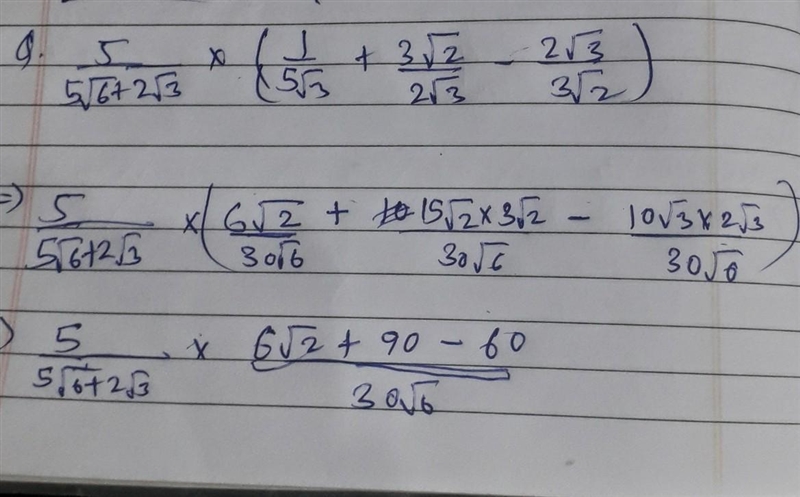 Q. 5/(5√6+2√3) × (1/(5√3) + 3√2/(2√3) - 2√3/(3√2))
=) 5/(5√6+2√3) × (6√2/(30√6) + 15√2×3√2/(30√6) - 10√3×2√3/(30√6))
) 5/(5√6+2√3) × (6√2 + 90 - 60)/(30√6)